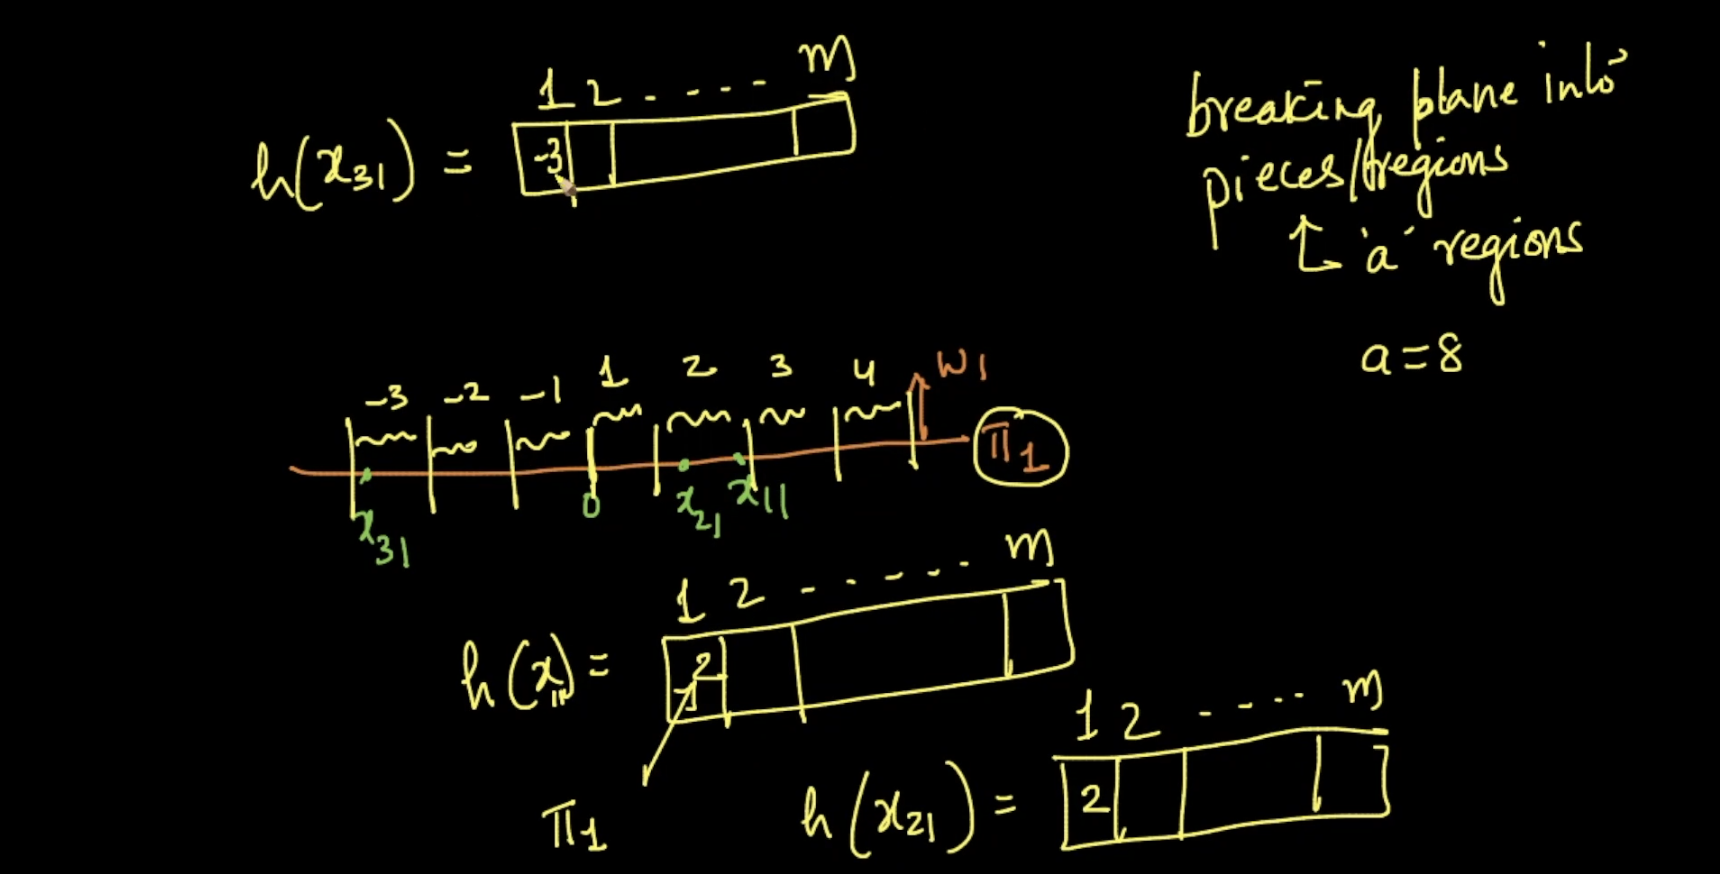 1 2 . - - - m
h(x31) = -3
breaking plane into
pieces/regions
↳ 'a' regions
a=8
-3 -2 -1 1 2 3 4 w1
π1
x31 0 x21 x11
1 2 - - - - - m
h(x11) = 2
π1
1 2 - - - - m
h(x21) = 2